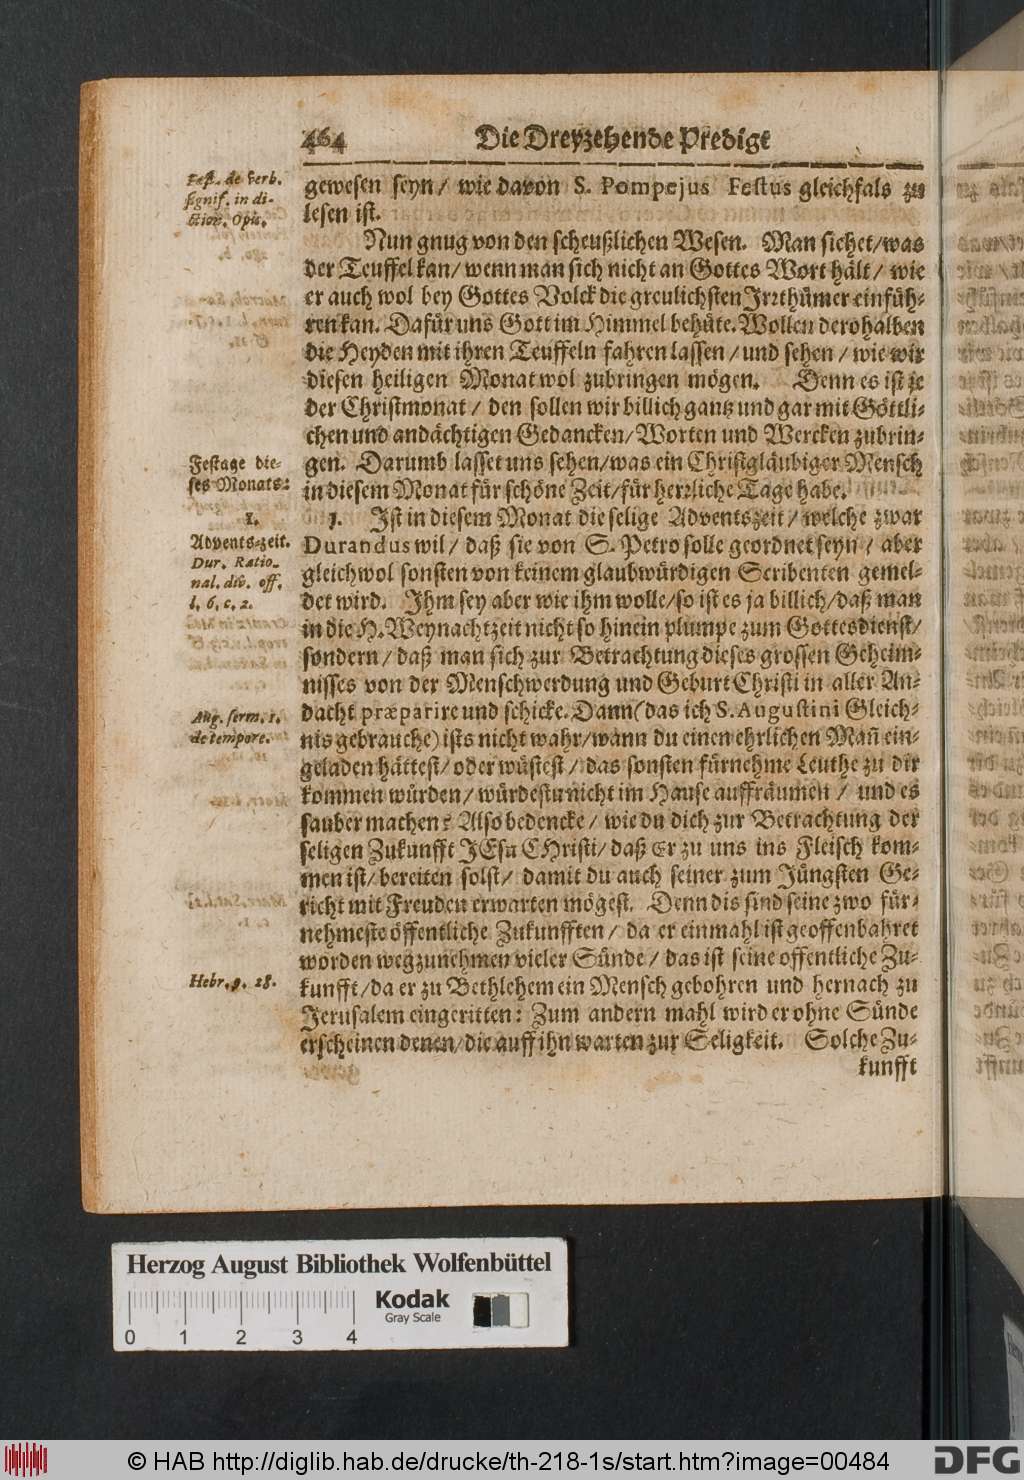 464 Die Dreyzehende Predigt
Fest. de verb.
signif. in di-
ction. Opis.
gewesen seyn / wie davon S. Pompejus Festus gleichfals zu
lesen ist.
Nun gnug von den scheußlichen Wesen. Man sichet / was
der Teuffel kan / wenn man sich nicht an Gottes Wort hält / wie
er auch wol bey Gottes Volck die greulichsten Irrthümer einfüh-
ren kan. Dafür uns Gott im Himmel behüte. Wollen derohalben
die Heyden mit ihren Teuffeln fahren lassen / und sehen / wie wir
diesen heiligen Monat wol zubringen mögen. Denn es ist je
der Christmonat / den sollen wir billich gantz und gar mit Göttli-
chen und andächtigen Gedancken / Worten und Wercken zubrin-
Festage die-
ses Monats:
gen. Darumb lasset uns sehen / was ein Christgläubiger Mensch
in diesem Monat für schöne Zeit / für herrliche Tage habe.
1.
Advents-zeit.
Dur. Ratio-
nal. div. off.
l. 6. c. 2.
1. Ist in diesem Monat die selige Adventszeit / welche zwar
Durandus wil / daß sie von S. Petro solle geordnet seyn / aber
gleichwol sonsten von keinem glaubwürdigen Scribenten gemel-
det wird. Ihm sey aber wie ihm wolle / so ist es ja billich / daß man
in die H. Weynachtzeit nicht so hinein plumpe zum Gottesdienst /
sondern / daß man sich zur Betrachtung dieses grossen Geheim-
nisses von der Menschwerdung und Geburt Christi in aller An-
Aug. serm. 1.
de tempore.
dacht præparire und schicke. Dann (das ich S. Augustini Gleich-
nis gebrauche) ists nicht wahr / wann du einen ehrlichen Mañ ein-
geladen hättest / oder wüstest / das sonsten fürnehme Leuthe zu dir
kommen würden / würdestu nicht im Hause auffräumen / und es
sauber machen? Also bedencke / wie du dich zur Betrachtung der
seligen Zukunfft JEsu CHristi / daß Er zu uns ins Fleisch kom-
men ist / bereiten solst / damit du auch seiner zum Jüngsten Ge-
richt mit Freuden erwarten mögest. Denn dis sind seine zwo für-
nehmeste öffentliche Zukunfften / da er einmahl ist geoffenbahret
worden wegzunehmen vieler Sünde / das ist seine offentliche Zu-
Hebr. 9. 28.
kunfft / da er zu Bethlehem ein Mensch gebohren und hernach zu
Jerusalem eingeritten: Zum andern mahl wird er ohne Sünde
erscheinen denen / die auff ihn warten zur Seligkeit. Solche Zu-
kunfft
Herzog August Bibliothek Wolfenbüttel
Kodak
Gray Scale
0 1 2 3 4
© HAB http://diglib.hab.de/drucke/th-218-1s/start.htm?image=00484
DFG